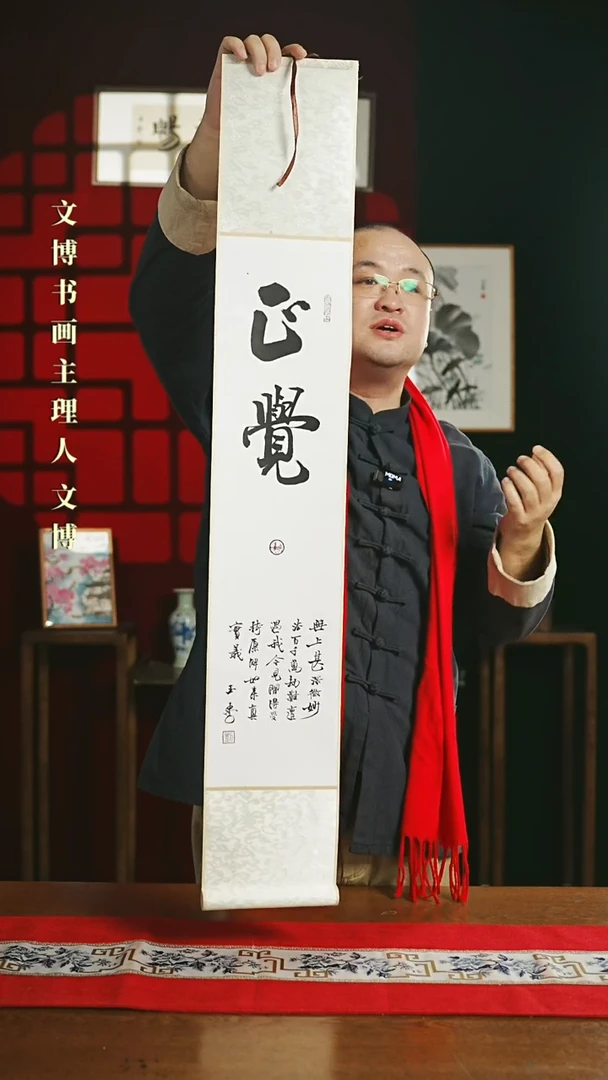 文博书画主理人文博
正覺
無上甚深微妙
法百千萬劫難遭
遇我今見聞得受
持願解如來真
實義